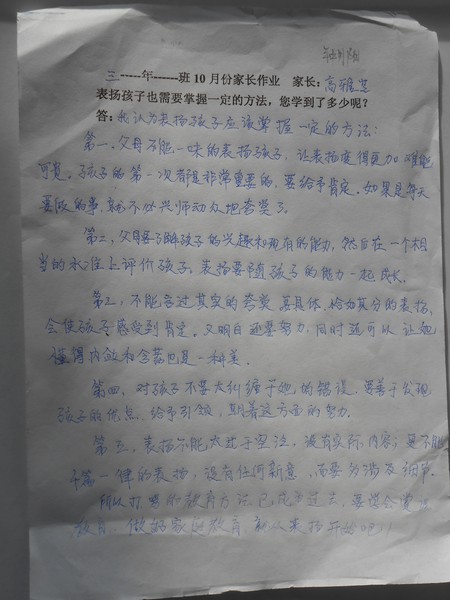 三-----年------班10月份家长作业 家长:高雅芝
表扬孩子也需要掌握一定的方法，您学到了多少呢？
答：我认为表扬孩子应该掌握一定的方法：
第一、父母不能一味的表扬孩子，让表扬变得更加难能
可贵。孩子的第一次都是非常重要的，要给予肯定。如果是每天
要做的事，就不必兴师动众地夸赏了。
第二，父母要了解孩子的兴趣和现有的能力，然后在一个相
当的水准上评价孩子。表扬要随孩子的能力一起成长。
第三，不能夸过其实的夸赏要具体，恰如其分的表扬，
会使孩子感受到肯定。又明白还要努力，同时还可以让她
懂得内敛和含蓄也是一种美。
第四，对孩子不要太纠缠于她的错误。要善于发现
孩子的优点。给予引领，朝着这方面的努力。
第五、表扬不能太过于空泛，没有实际内容；更不能
千篇一律的表扬，没有任何新意，而要多涉及细节。
所以打骂的教育方法已成为过去，要学会赏识
教育，做好家庭教育就从表扬开始吧！